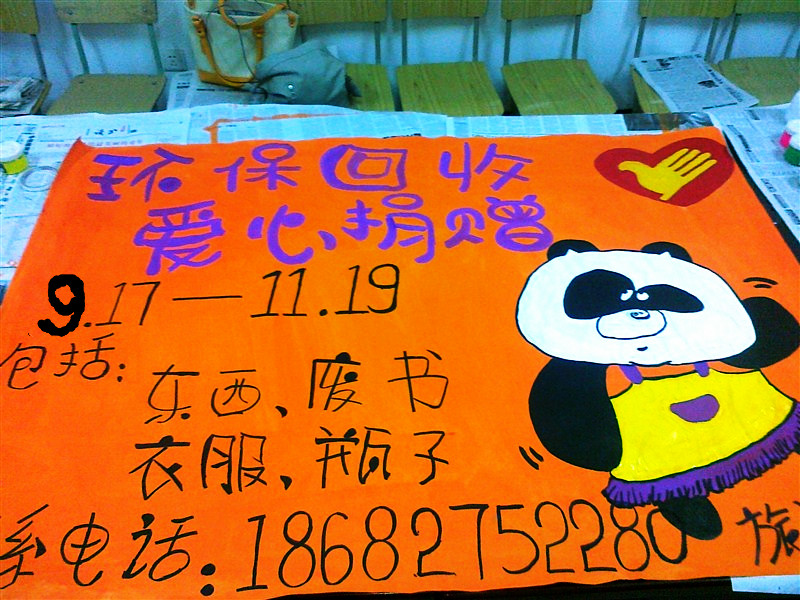 环保回收
爱心捐赠
9.17—11.19
包括:
东西、废书
衣服、瓶子
系电话:18682752280
旅